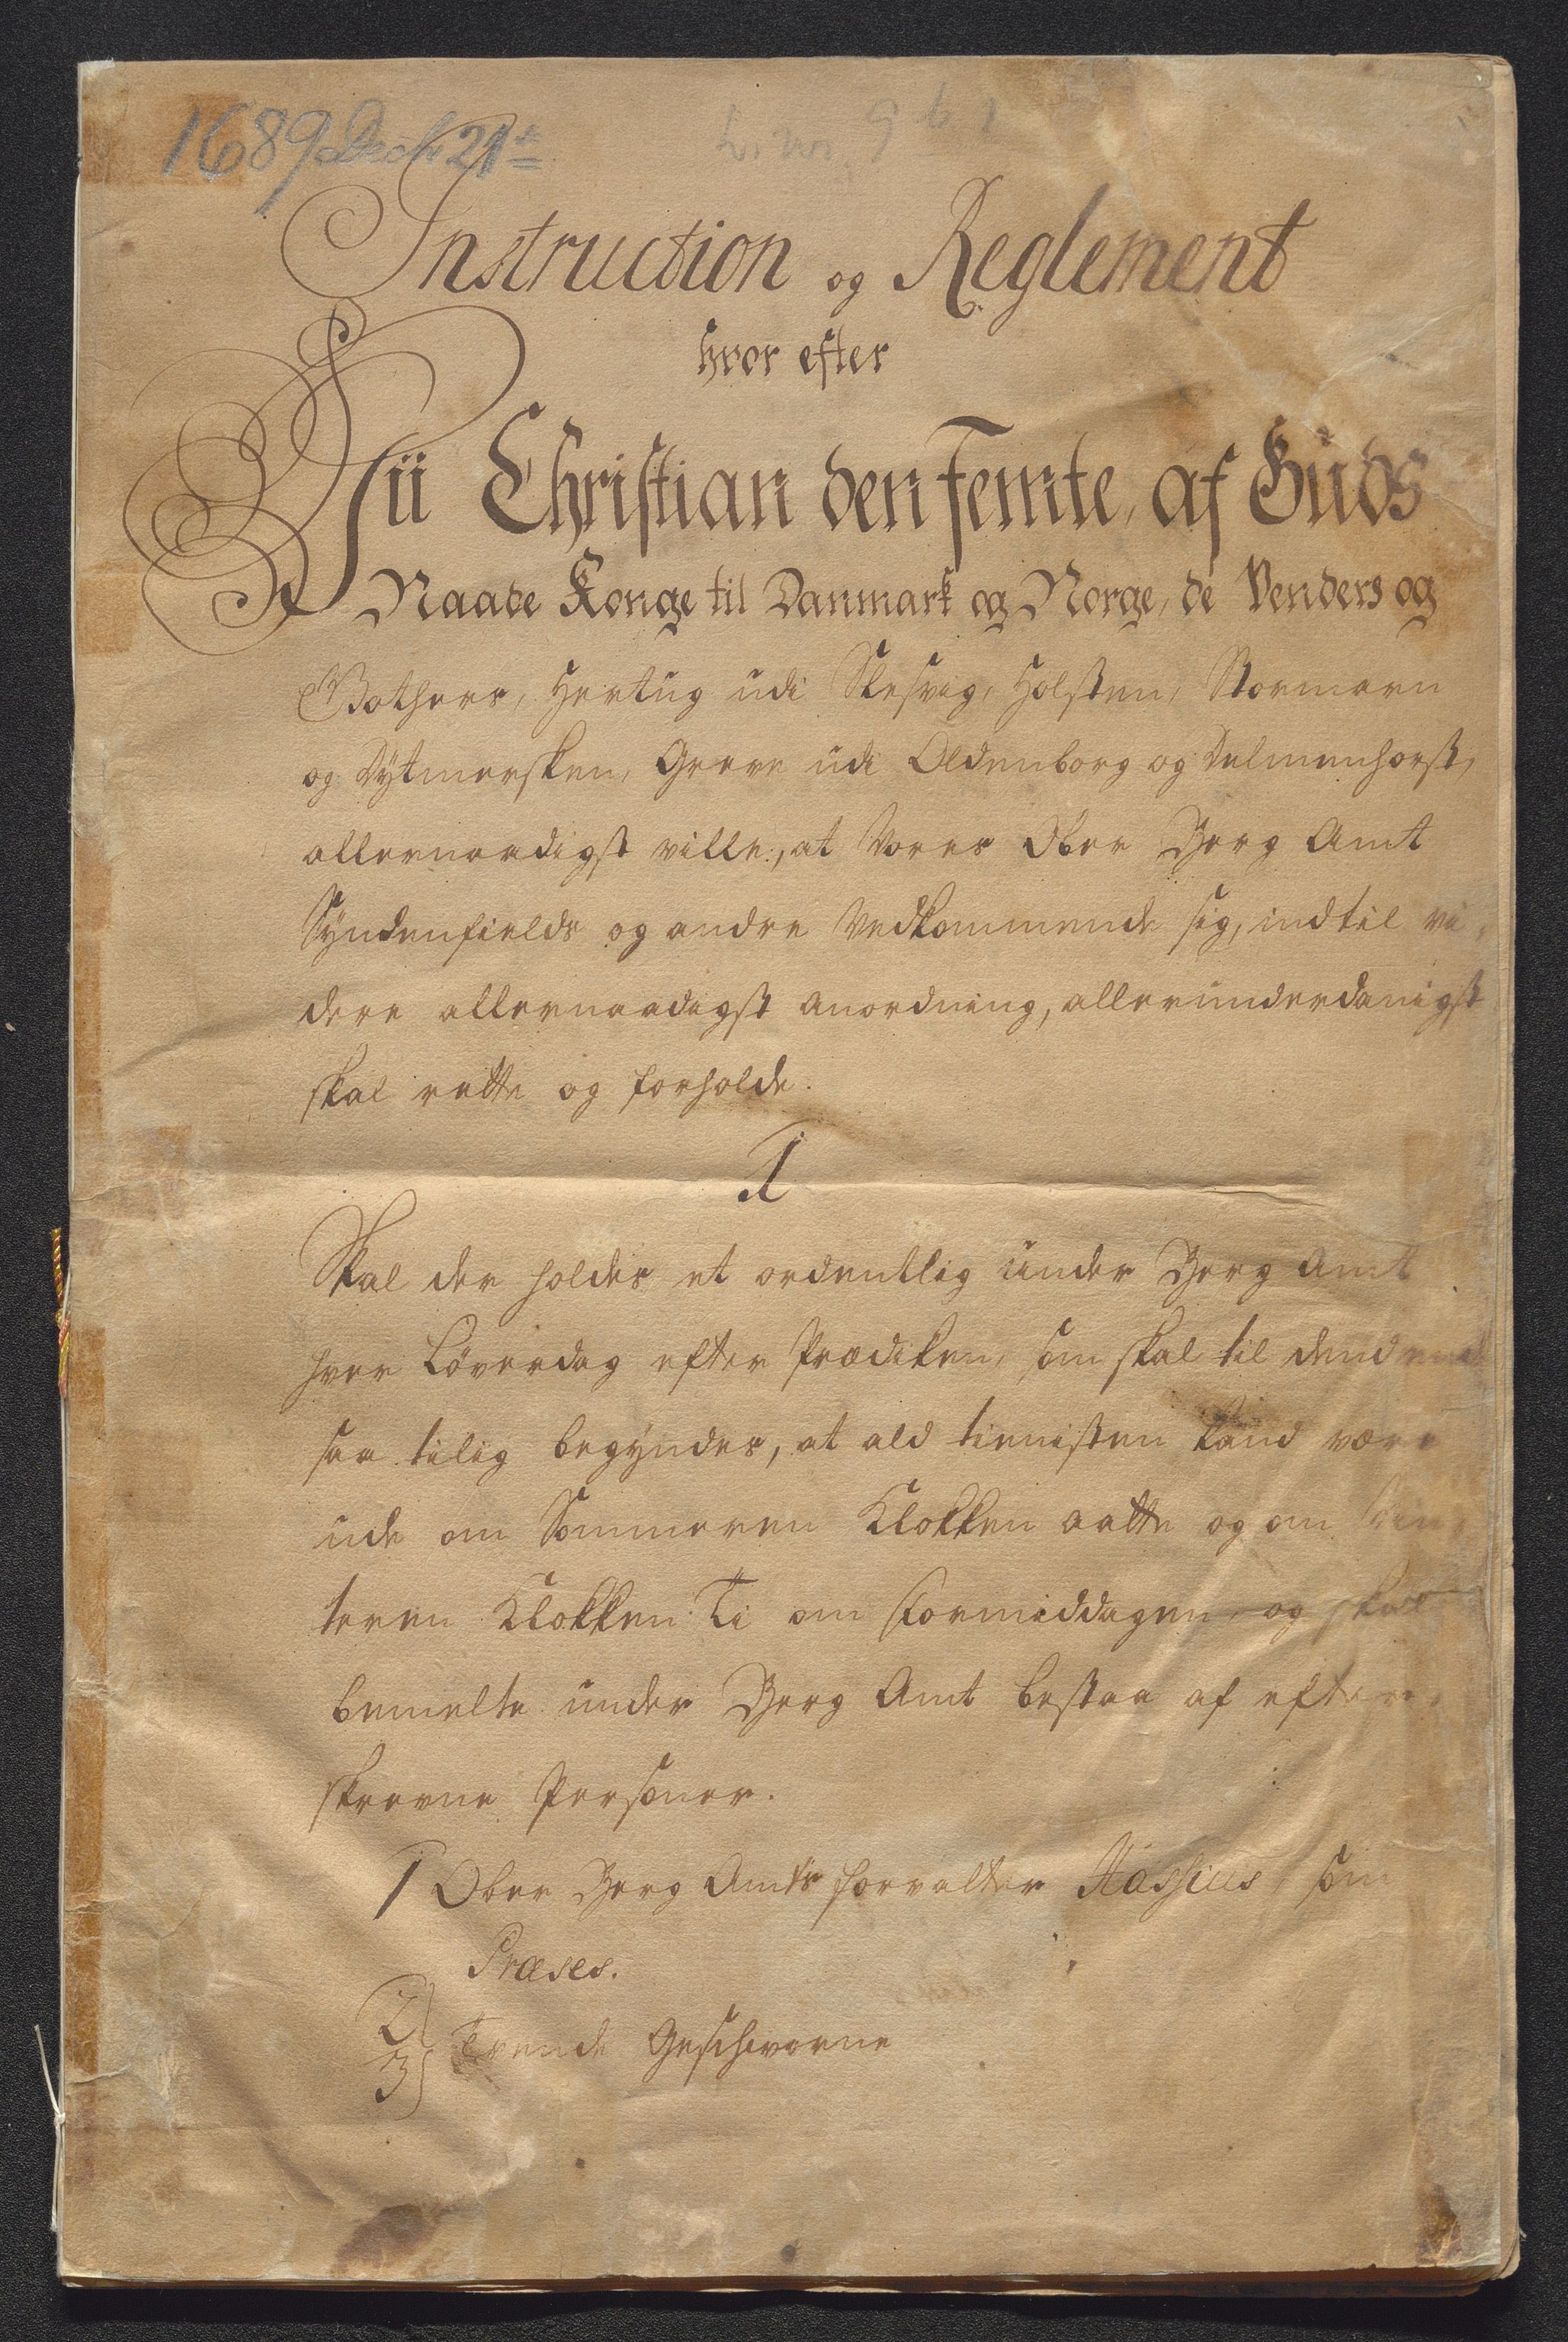 1689 Decbr 21de
Instruction og Reglement
hvor efter
Vii Christian den Femte, af Guds
Naade Konge til Danmark og Norge, de Venders og
Gothers, Hertug udi Slesvig, Holsten, Stormarn
og Dytmersken, Greve udi Oldenborg og Delmenhorst,
allernaadigst ville, at Vores Ober Berg Amt
Syndenfields og andre Vedkommende sig, indtil vi,
dere allernaadigst Anordning, allerunderdanigst
skal rette og forholde.
1
Skal der holdes et ordentlig under Berg Amt
hver Løverdag efter Prædiken, som skal til dend
saa tilig begyndes, at ald tienisten kand være
ude om Sommeren Klokken aatte og om Vin,
teren Klokken Ti om Formiddagen, og skal
bemelte under Berg Amt bestaa af efter,
skrevne Personer.
1 Ober Berg Amts forvalter Hassius som
Præses.
2)
3) Tvende Geschworne